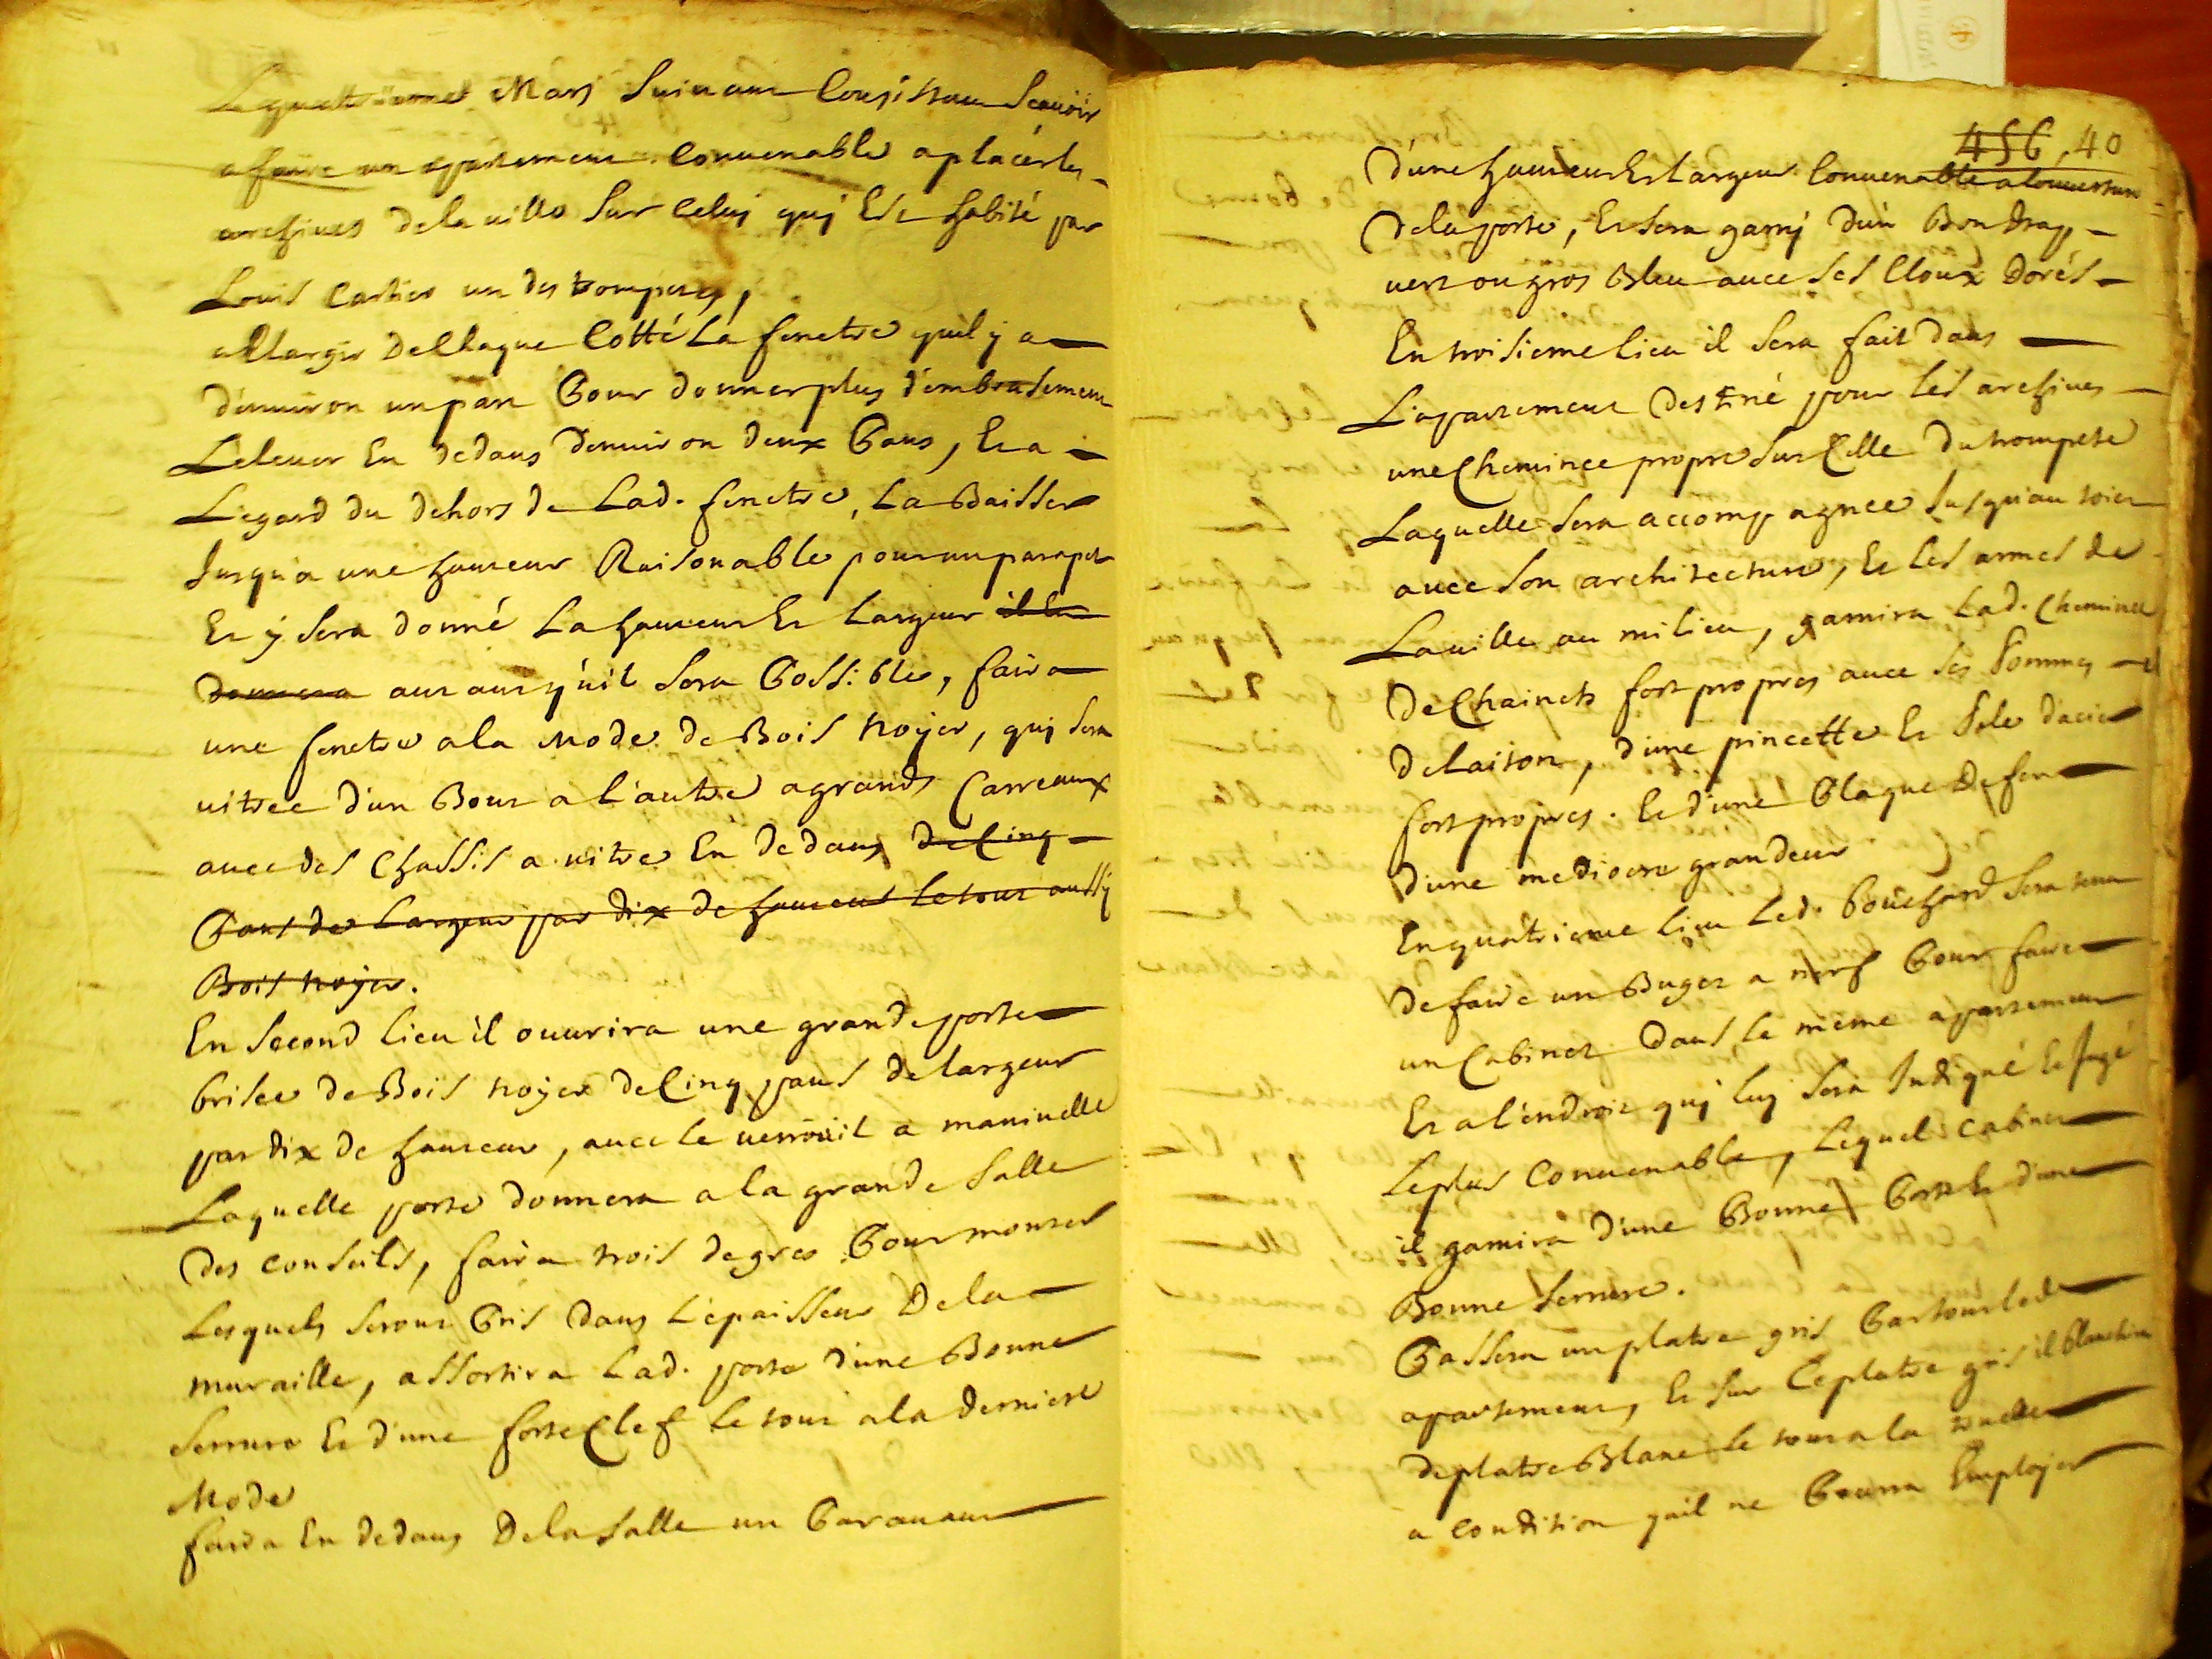 Mars suiuant Consistant scauoir
a faire un apartement Conuenable a placér les
archiues dela uille sur Celuj quj Est habité par
Louis Cartier un des trompetes,
ellargir de Chaque Cotté La fenetre quil y a
d'enuiron un pan Pour donner plus d'embrasement
L'eleuer En dedans Denuiron deux Pans, Et a
L'egard du dehors de Lad. fenetre, La Baisser
Jusqu'a une hauteur Raisonable pour un parapet
Et ÿ sera donné La hauteur Et Largeur il lui
donnera autant qu'il sera Possible, faira
une fenetre a la Mode de Bois noÿer, quj sera
uitree d'un Bout a l'autre a grands Carreaux
auec des Chassis a uitre En dedans de Cinq
Pans de Largeur par dix de hauteur le tout aussÿ
Bois noÿer.
En second lieu il ouurira une grande porte
brisee de Bois noÿer de Cinq pans de largeur
par dix de hauteur, auec le uerrouil a maniuelle
Laquelle porte donnera a la grande salle
des conseils, faira trois degres Pour monter
Lesquels seront Pris dans L'epaisseur De la
muraille, assortira Lad. porte d'une Bonne
serrure Et d'une forte Clef le tout a la derniere
Mode
faira En dedans De la salle un Parauant
456, 40
D'une hauteur Et Largeur Conuenable a louuerture
De la porte, Et sera garnj d'un Bon drap
uert ou gros Bleu auec ses Cloux dorés
En troisieme lieu il sera fait dans
L'apartement destiné pour les archiues
une Cheminee propre sur Celle du trompete
Laquelle sera accompagnee Jusqu'au toict
auec son architecture, Et les armes de
La uille au milieu, garnira Lad. Cheminee
De Chainets fort propres auec ses Pommes
de laiton, d'une pincette Et Pele d'acier
fort propres. Et d'une Plaque De feu
d'une mediocre grandeur
En quatrieme lieu Led. Bouchard sera tenu
De faire un Buget a nerf Pour faire
un Cabinet dans le mème apartement
Et a l'endroit quj luj sera Indiqué
Le plus Conuenable, Lequel cabinet
il garnira d'une Bonne Porte Et d'une
Bonne serrure.
Passera un platre gris Par tout led
apartement, Et sur Le platre gris il blanchira
de platre Blanc le tout a la truelle
a condition quil ne Pourra Emploÿer